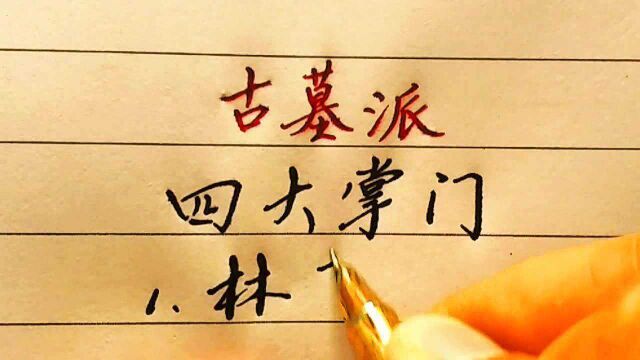 古墓派
四大掌门
1.林